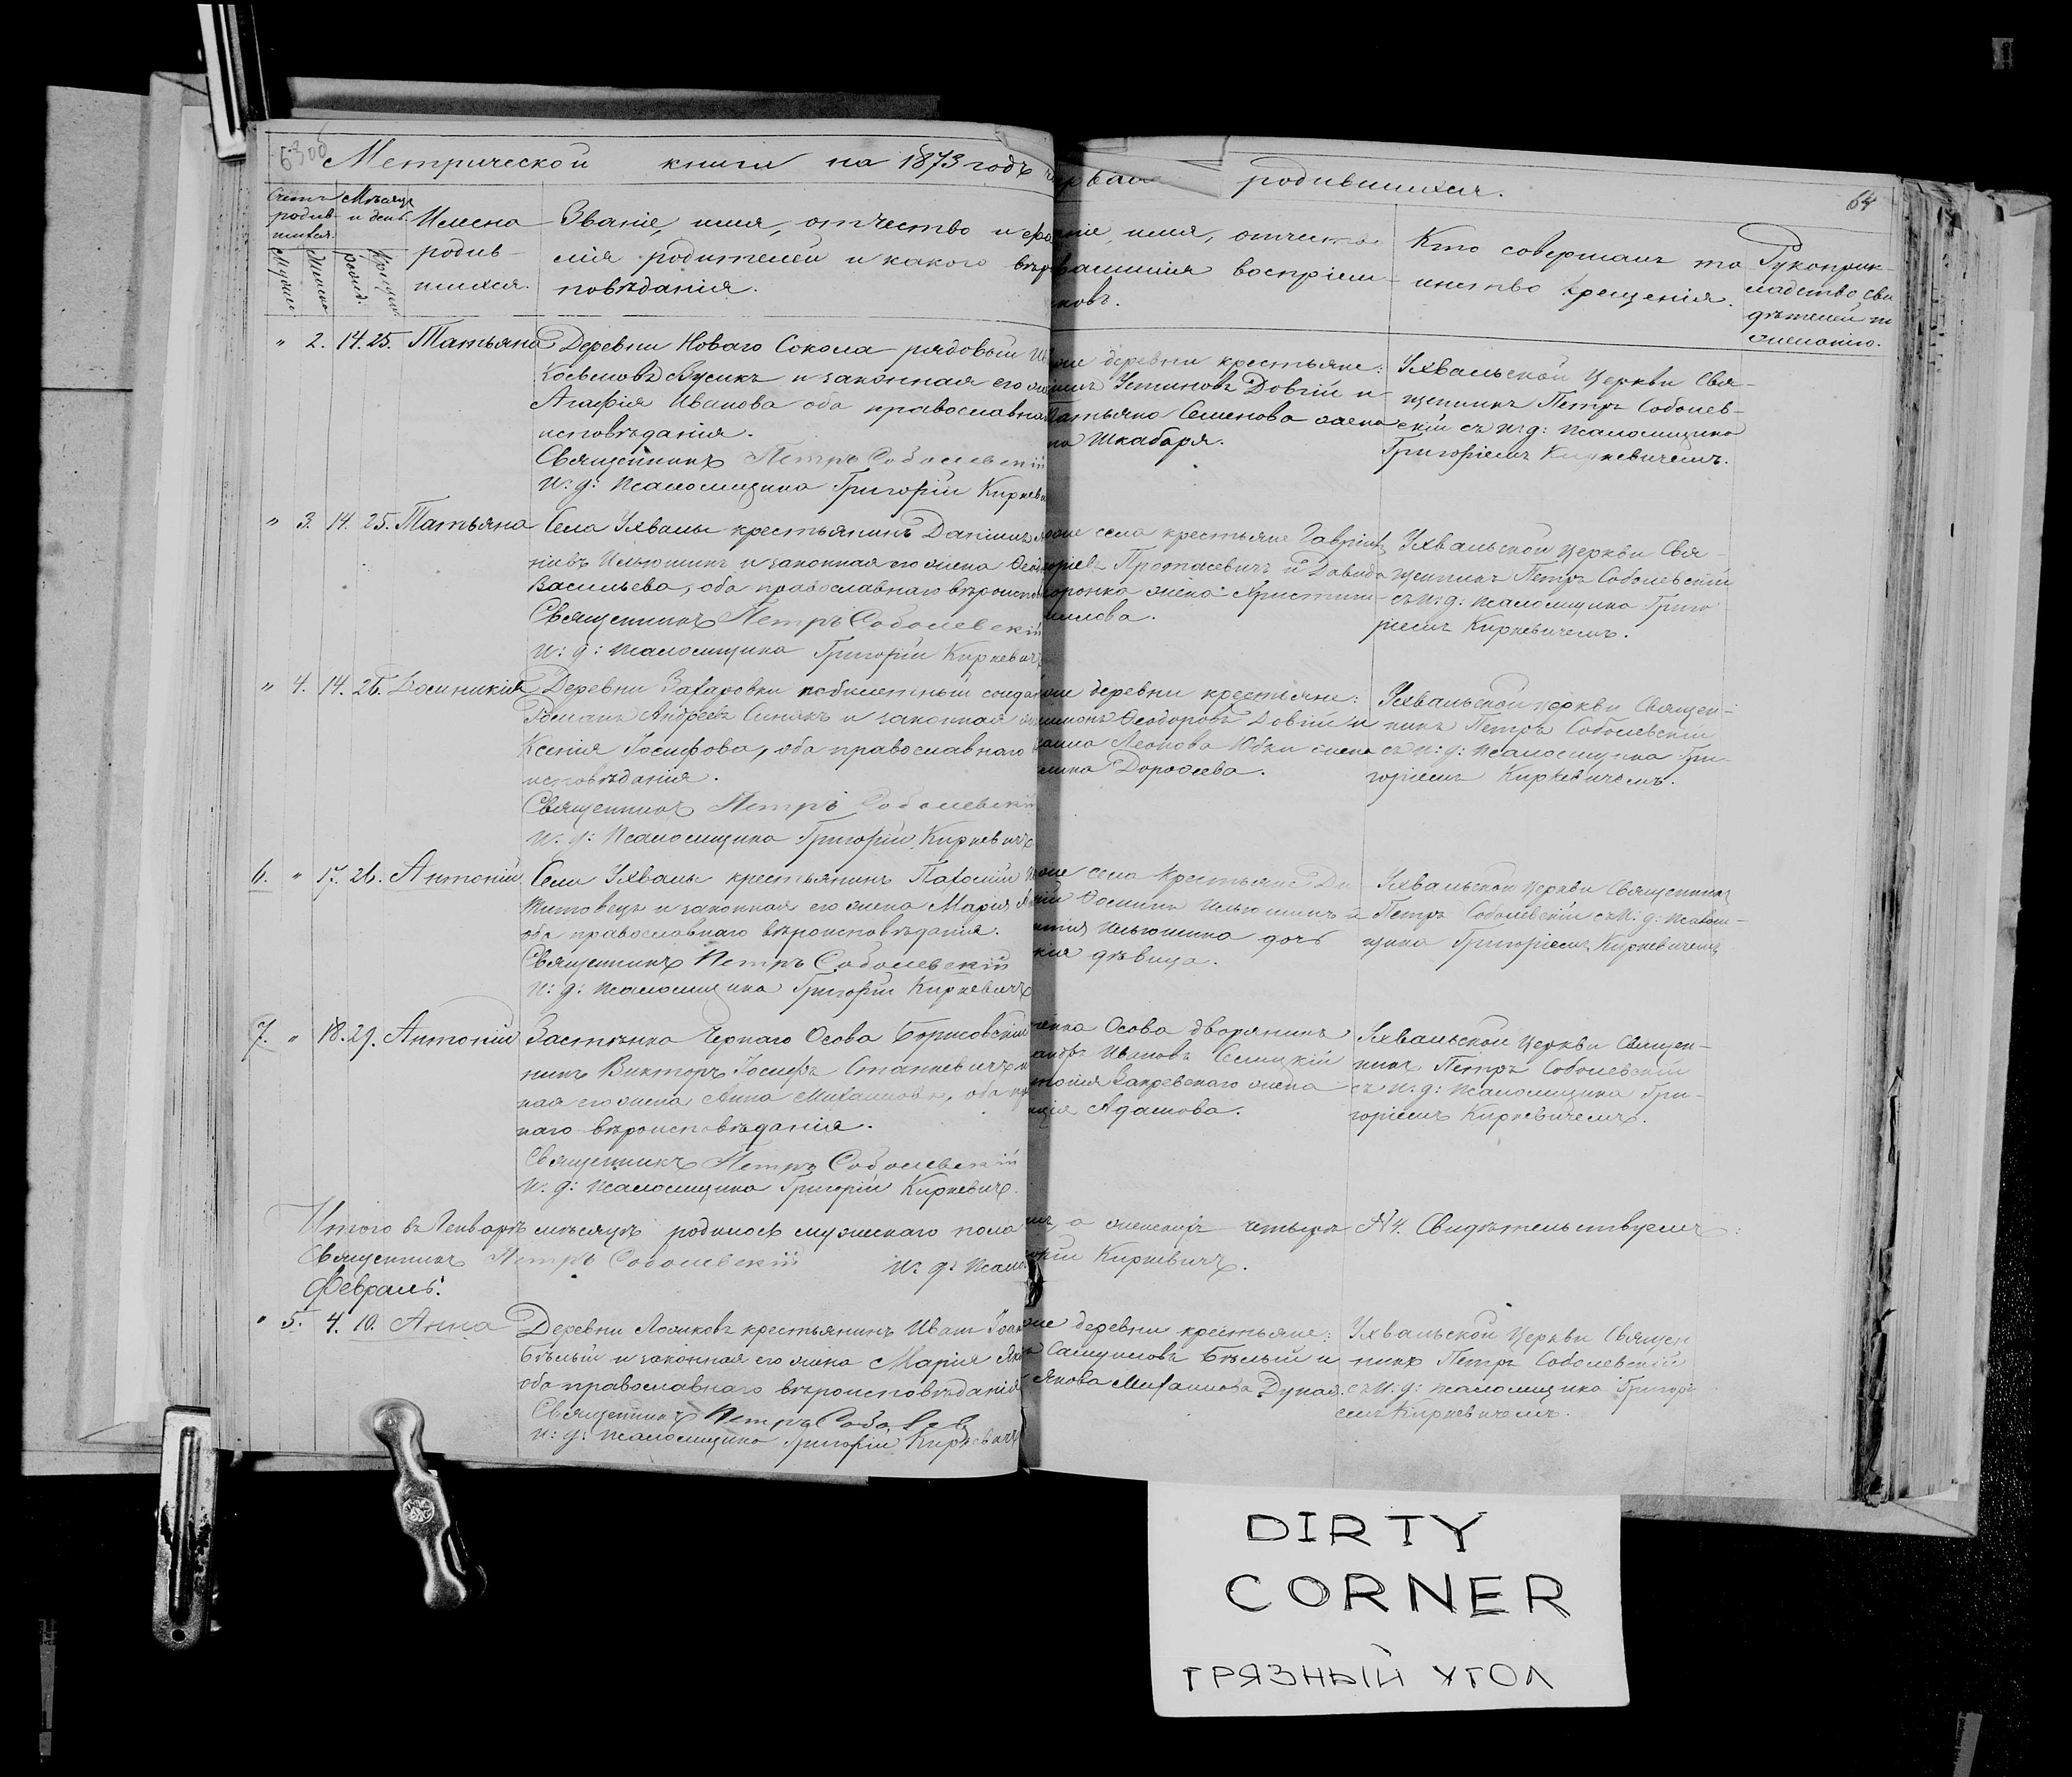 Метрической книги на 1873 годъ
родившихся.
64
Счетъ родив-шихся.
Мѣсяцъ и день.
Мужска
Женска
рожд.
крещен.
Имена
родив-
шихся.
Званіе, имя, отчество и
лія родителей и какого
повѣданія.
имя, отчество
воспріем-
Кто совершалъ та
инство крещенія.
Рукоприк-
ладство сви
дѣтелей
" 2. 14. 25. Татьяна
Деревни Новаго Сокола рядовый
Косьмовъ Бусикъ и законная его
Агафія Иванова оба православна
исповѣданія.
Священникъ Петръ Соболевскій
И: д: псаломщика Григорій Киркев
деревни крестьяне:
Устиновъ Довгій и
Татьяна Семенова жена
Шкабаря.
Ухвальской Церкви Свя-
щенникъ Петръ Соболев-
скій съ и: д: псаломщика
Григоріемъ Киркевичемъ.
" 3. 14. 25. Татьяна
Села Ухвалы крестьянинъ Даніилъ
Ильюшинъ и законная его жена
Васильева, оба православнаго вѣроиспов
Священникъ Петръ Соболевскій
И: д: псаломщика Григорій Киркевичъ
села крестьяне Гавріилъ
Протасевичъ и Давида
жена Христин
Ухвальской Церкви Свя-
щенникъ Петръ Соболевскій
съ и: д: псаломщика Григо
ріемъ Киркевичемъ.
" 4. 14. 26. Домникія
Деревни Захаровки побилетный солда
Романъ Андреевъ Синякъ и законная
Ксенія Іосифова, оба православнаго
исповѣданія.
Священникъ Петръ Соболевскій
И: д: псаломщика Григорій Киркевичъ
деревни крестьяне:
Ѳеодоровъ Довгій и
Леонова жена
Дороѳеева.
Ухвальской Церкви Священ-
никъ Петръ Соболевскій
съ и: д: псаломщика Гри-
горіемъ Киркевичемъ.
6. " 17. 26. Антоній
Села Ухвалы крестьянинъ Пахомій
Титовецъ и законная его жена Марія
оба православнаго вѣроисповѣданія.
Священникъ Петръ Соболевскій
И: д: псаломщика Григорій Киркевичъ
села крестьяне
Ильюшинъ и
Ильюшина дочь
дѣвица.
Ухвальской Церкви Священникъ
Петръ Соболевскій съ и: д: псалом-
щика Григоріемъ Киркевичемъ
7. " 18. 29. Антоній
Застѣнка Чернаго Осова Борисовскій
Викторъ Іосифъ Станкевичъ и
ная его жена Анна Михаилова, оба пр
наго вѣроисповѣданія.
Священникъ Петръ Соболевскій
И: д: псаломщика Григорій Киркевичъ.
Осова дворянинъ
Ивановъ
Закревскаго жена
Адамова.
Ухвальской Церкви Священ-
никъ Петръ Соболевскій
съ и: д: псаломщика Гри-
горіемъ Киркевичемъ.
Итого въ Генварѣ мѣсяцѣ родилось мужескаго пола
а женскаго четыре № 4. Свидѣтельствуемъ:
Священникъ Петръ Соболевскій И: д: псало
Киркевичъ.
Февраль.
" 5. 4. 10. Анна
Деревни крестьянинъ Иванъ
Бѣлый и законная его жена Марія
оба православнаго вѣроисповѣданія
Священникъ Петръ
И: д: псаломщика Григорій Киркевичъ
деревни крестьяне:
Самуиловъ Бѣлый и
Михаилова Дуная.
Ухвальской Церкви Священ
никъ Петръ Соболевскій
съ и: д: псаломщика Григорі
емъ Киркевичемъ.
DIRTY
CORNER
ГРЯЗНЫЙ УГОЛ